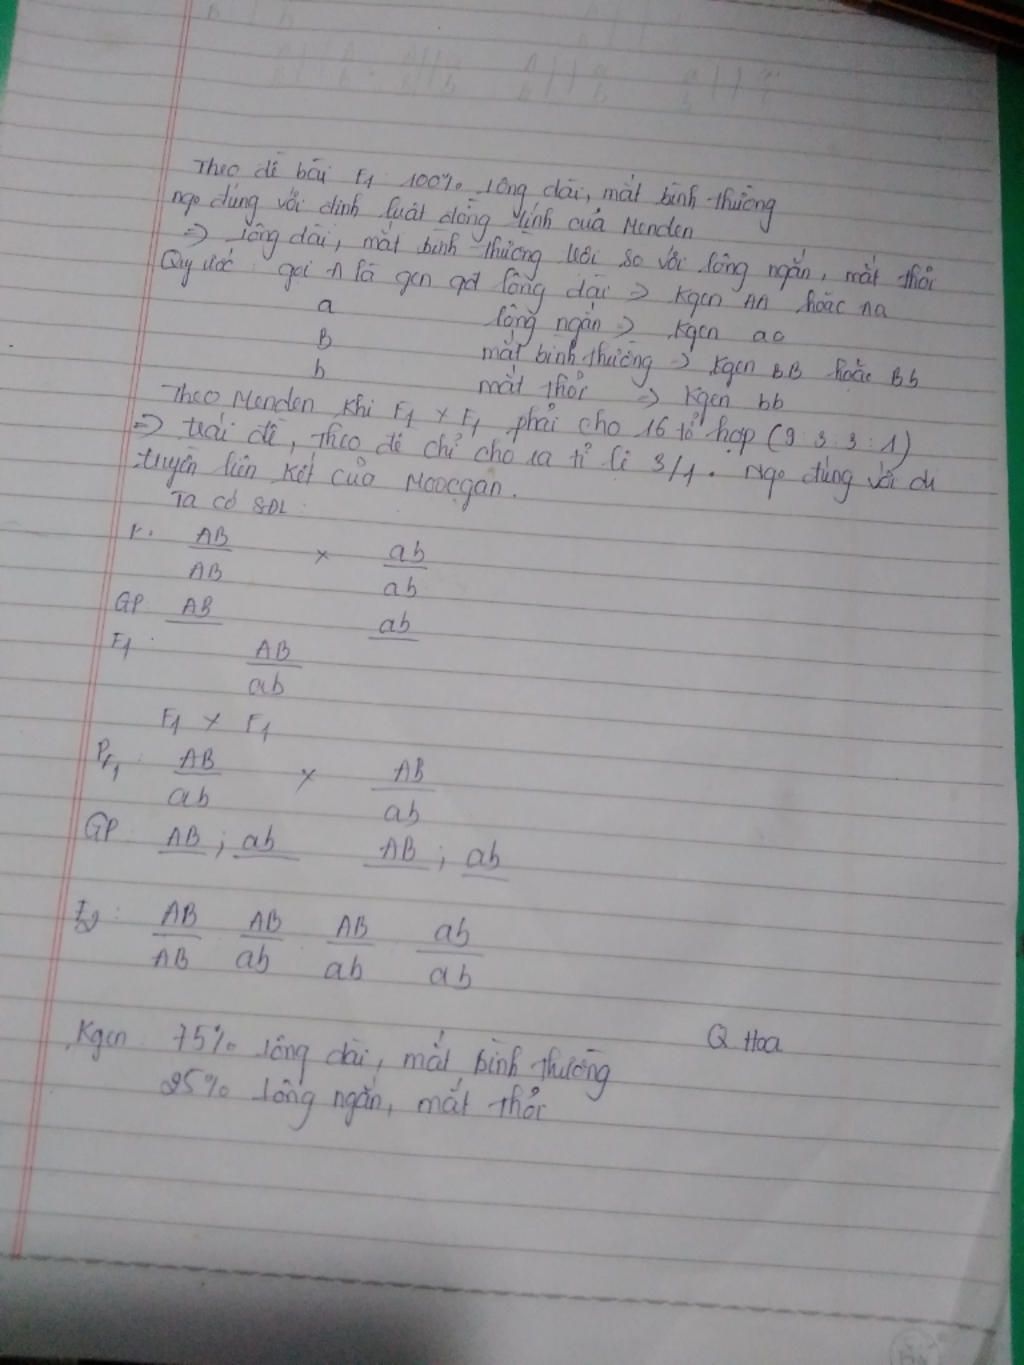 Theo đề bài F1 100% lông dài, mắt bình thường
ngo đúng với định luật đồng tính của Menden
=> lông dài, mắt bình thường trội so với lông ngắn, mắt thỏi
Quy ước: gọi A là gen qđ lông dài => Kgen AA hoặc Aa
a lông ngắn => Kgen aa
B mắt bình thường => Kgen BB hoặc Bb
b mắt thỏi => Kgen bb
Theo Menden khi F1 x F1 phải cho 16 tổ hợp (9:3:3:1)
=> trái đề, theo đề chỉ cho ra tỉ lệ 3/1. Ngo đúng với di
truyền liên kết của Moocgan.
Ta có SĐL:
P: AB/AB x ab/ab
GP: AB ab
F1: AB/ab
F1 x F1
PF1: AB/ab x AB/ab
GP: AB ; ab AB ; ab
F2: AB/AB AB/ab AB/ab ab/ab
Kgen: 75% lông dài, mắt bình thường
Q Hoa
25% lông ngắn, mắt thỏi